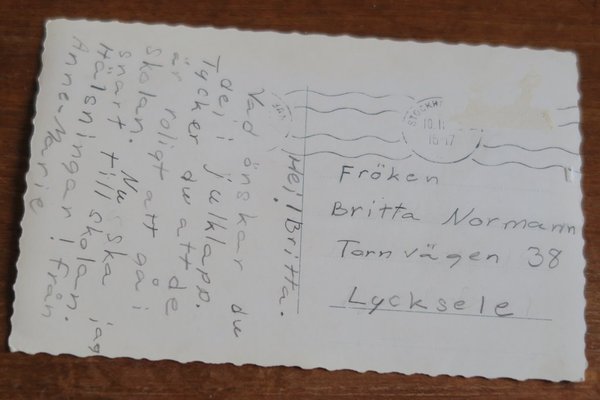 Hej! Britta.
Vad önskar du
dej i julklapp.
Tycker du att de
är roligt att gå i
skolan. Nu ska jag
snart till skolan.
Hälsningar! från
Anne-Marie
STOCKH
Fröken
Britta Normann
Tornvägen 38
Lycksele